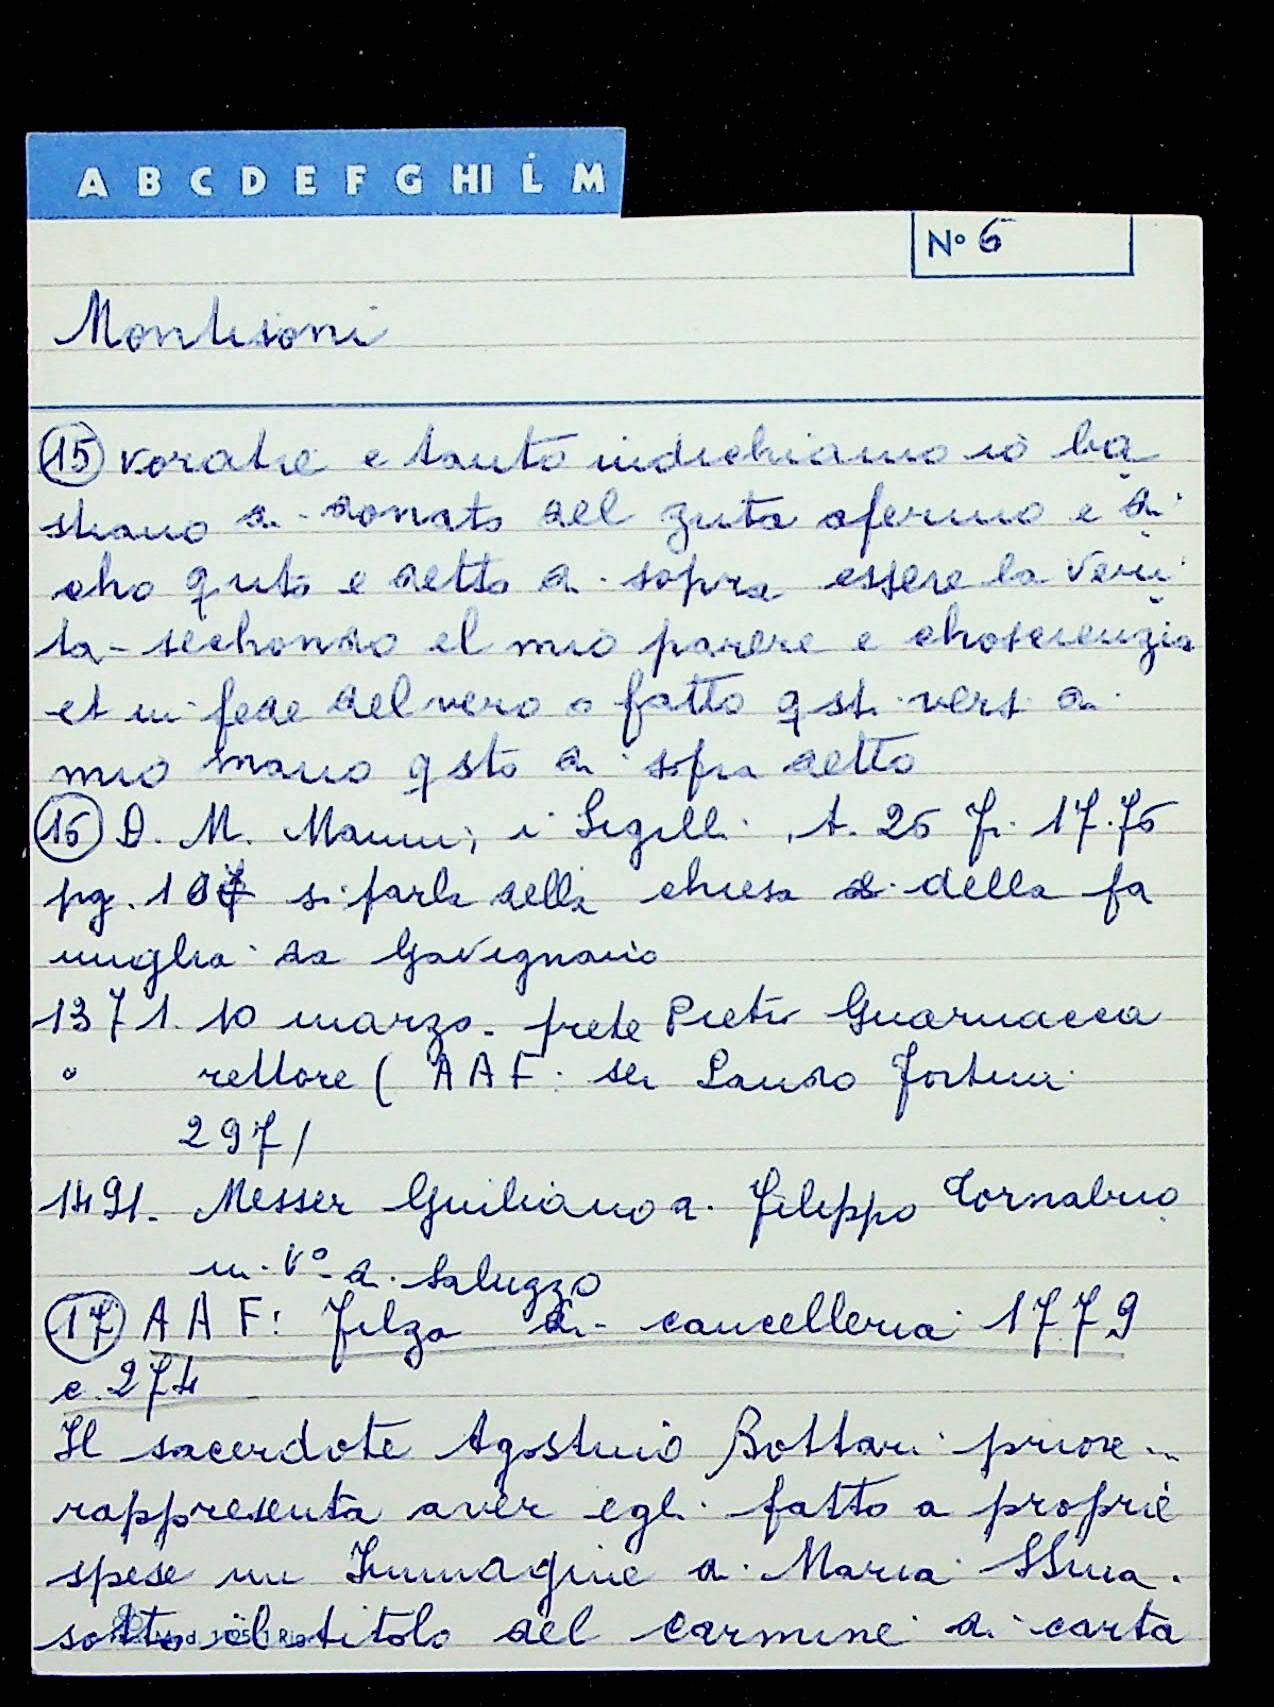 A B C D E F G HI L M
N° 6
Montisoni
15 vorate e tanto indichiamo io ba
stiano di donato del zuta afermo e di
cho quto e detto di sopra essere la veri
ta sechondo el mio parere e choscienzia
et in fede del vero o fatto qsti versi di
mio mano qsto di sopra detto
16 D. M. Manni, i Sigilli. t. 26 Fi. 1775
pg. 107 si parla della chiesa e della fa
miglia da Gavignano
1371. 10 marzo - prete Pietro Guarnacca
rettore (AAF: ser Lando Fortini
297/
1491. Messer Giuliano di Filippo Tornabuo
ni. Vo di Saluzzo
17 AAF: Filza di cancelleria 1779
c. 274
Il sacerdote Agostino Bottari priore
rappresenta aver egli fatto a proprie
spese un Immagine di Maria SSma.
sotto il titolo del Carmine di carta